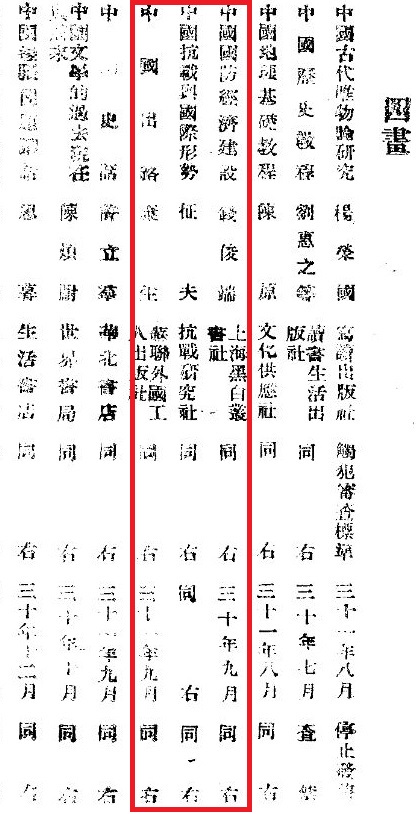 四畫
中國古代唯物論研究 楊榮國 寫讀出版社 觸犯審查標準 三十一年八月 停止發售
中國歷史教程 劉惠之等 讀書生活出版社 同右 三十年七月 查禁
中國地理基礎教程 陳原 文化供應社 同右 三十一年八月 同右
中國國防經濟建設 錢俊瑞 上海黑白叢書社 同右 三十年九月 同右
中國抗戰與國際形勢 征夫 抗戰研究社 同右 同右 同右
中國出路 生 蘇聯外國工人出版社 同右 三十一年九月 同右
中 史話 許立羣 華北書店 同右 三十一年九月 同右
中國文學的過去現在與 來 陳煩 世界書局 同右 三十年十月 同右
中國 生活書店 同右 三十年十二月 同右